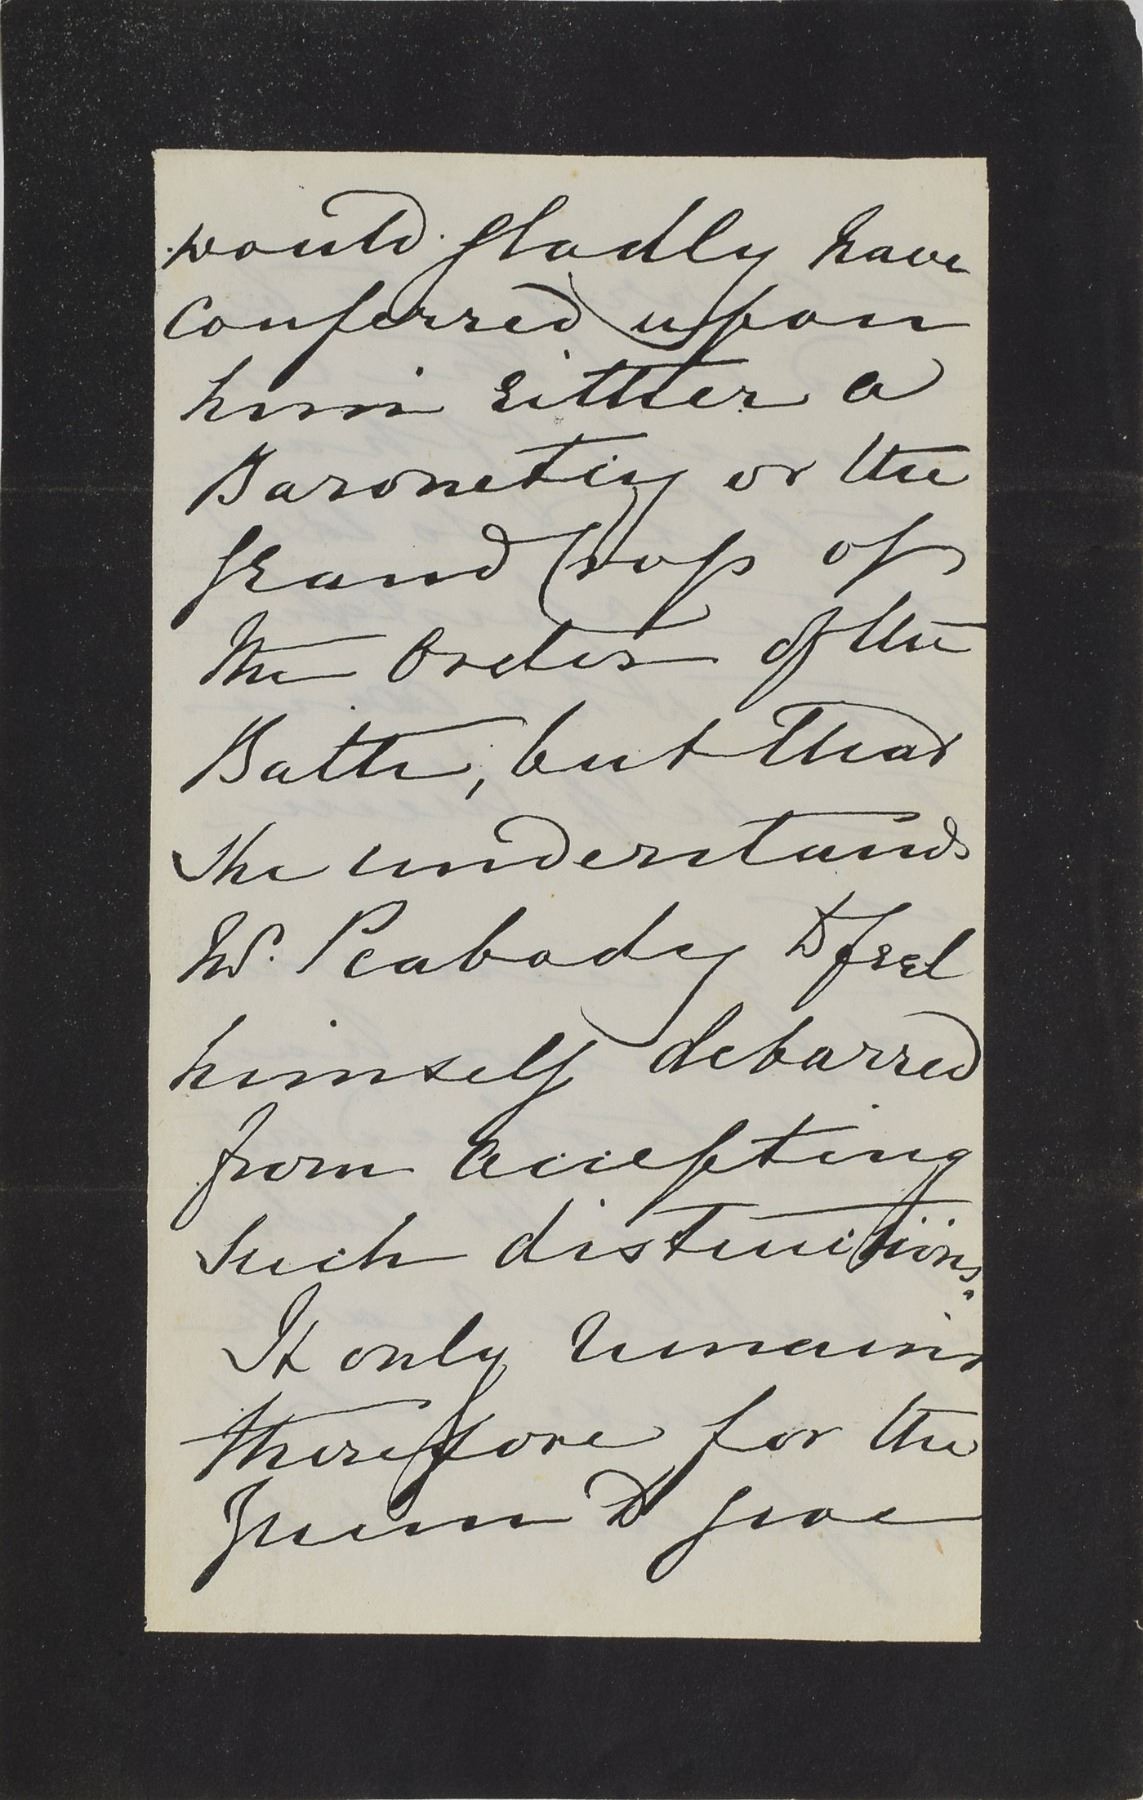 would gladly have
conferred upon
him either a
Baronetcy or the
Grand Cross of
the Order of the
Bath, but that
she understands
Mr. Peabody to feel
himself debarred
from accepting
such distinctions.
It only remains
therefore for the
Queen to give